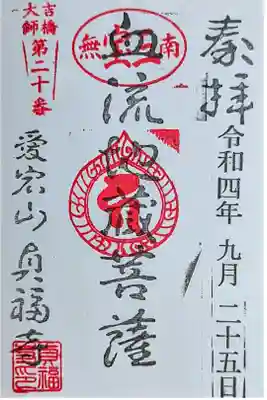 奉拝
令和四年 九月 二十五日
南無
血流地蔵菩薩
吉橋
大師
第二十番
愛宕山 貞福寺